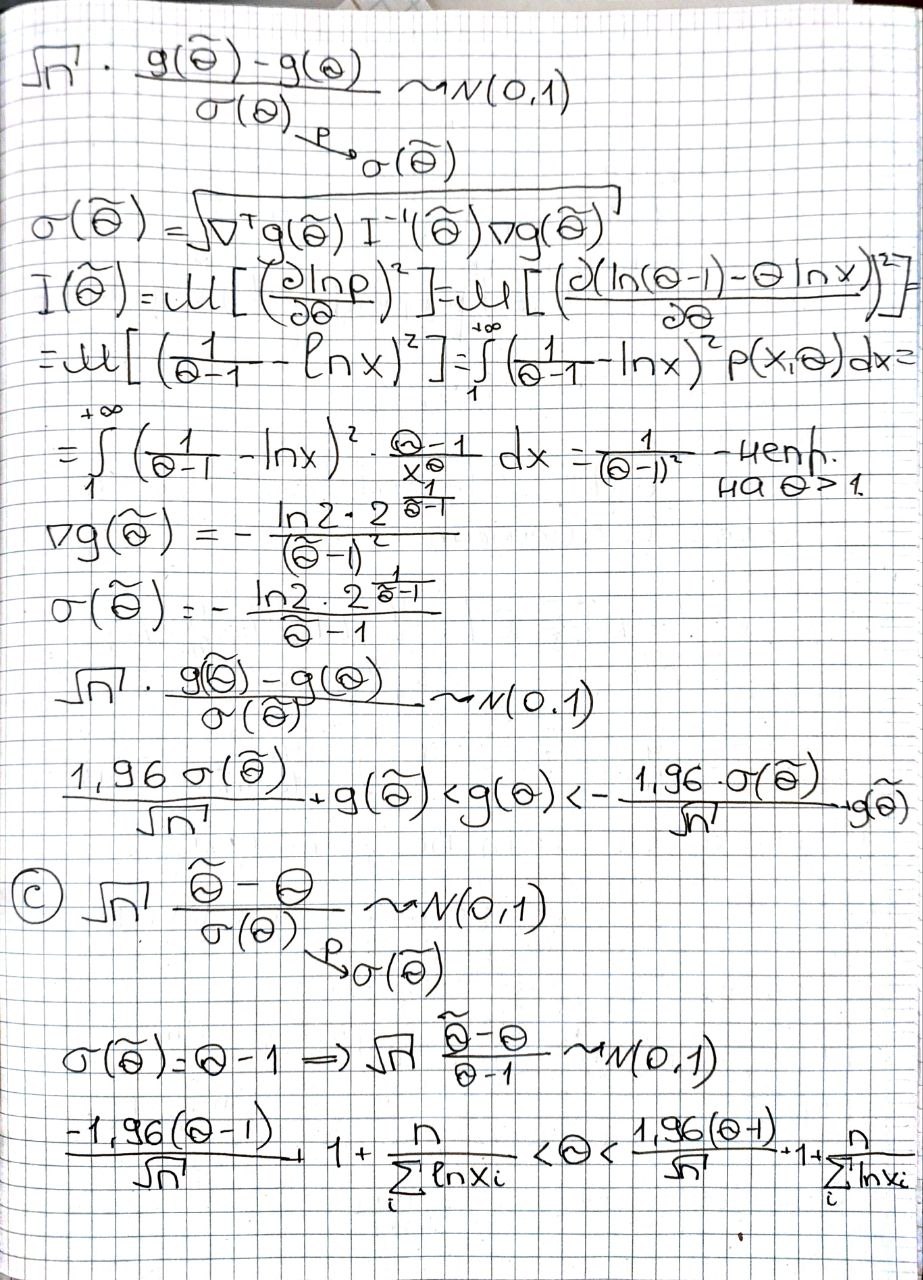 √n · (g(θ̃) - g(θ))/σ(θ) ~ N(0,1)
P→ σ(θ̃)
σ(θ̃) = √(∇ᵀg(θ̃) I⁻¹(θ̃) ∇g(θ̃))
I(θ̃) = M[(∂lnp/∂θ)²] = M[(∂(ln(θ-1) - θ lnx)/∂θ)²] =
= M[(1/(θ-1) - lnx)²] = ∫₁^{+∞} (1/(θ-1) - lnx)² p(x,θ) dx =
= ∫₁^{+∞} (1/(θ-1) - lnx)² · (θ-1)/x^θ dx = 1/(θ-1)² - непр.
на θ > 1
∇g(θ̃) = - (ln2 · 2^{1/(θ̃-1)})/(θ̃-1)²
σ(θ̃) = - (ln2 · 2^{1/(θ̃-1)})/(θ̃-1)
√n · (g(θ̃) - g(θ))/σ(θ̃) ~ N(0.1)
1,96 σ(θ̃)/√n + g(θ̃) < g(θ) < - 1,96 · σ(θ̃)/√n + g(θ̃)
c) √n (θ̃ - θ)/σ(θ) ~ N(0,1)
P→ σ(θ̃)
σ(θ̃) = θ - 1 ⇒ √n (θ̃ - θ)/(θ-1) ~ N(0,1)
-1,96(θ-1)/√n + 1 + n/∑ᵢ lnxᵢ < θ < 1,96(θ-1)/√n + 1 + n/∑ᵢ lnxᵢ